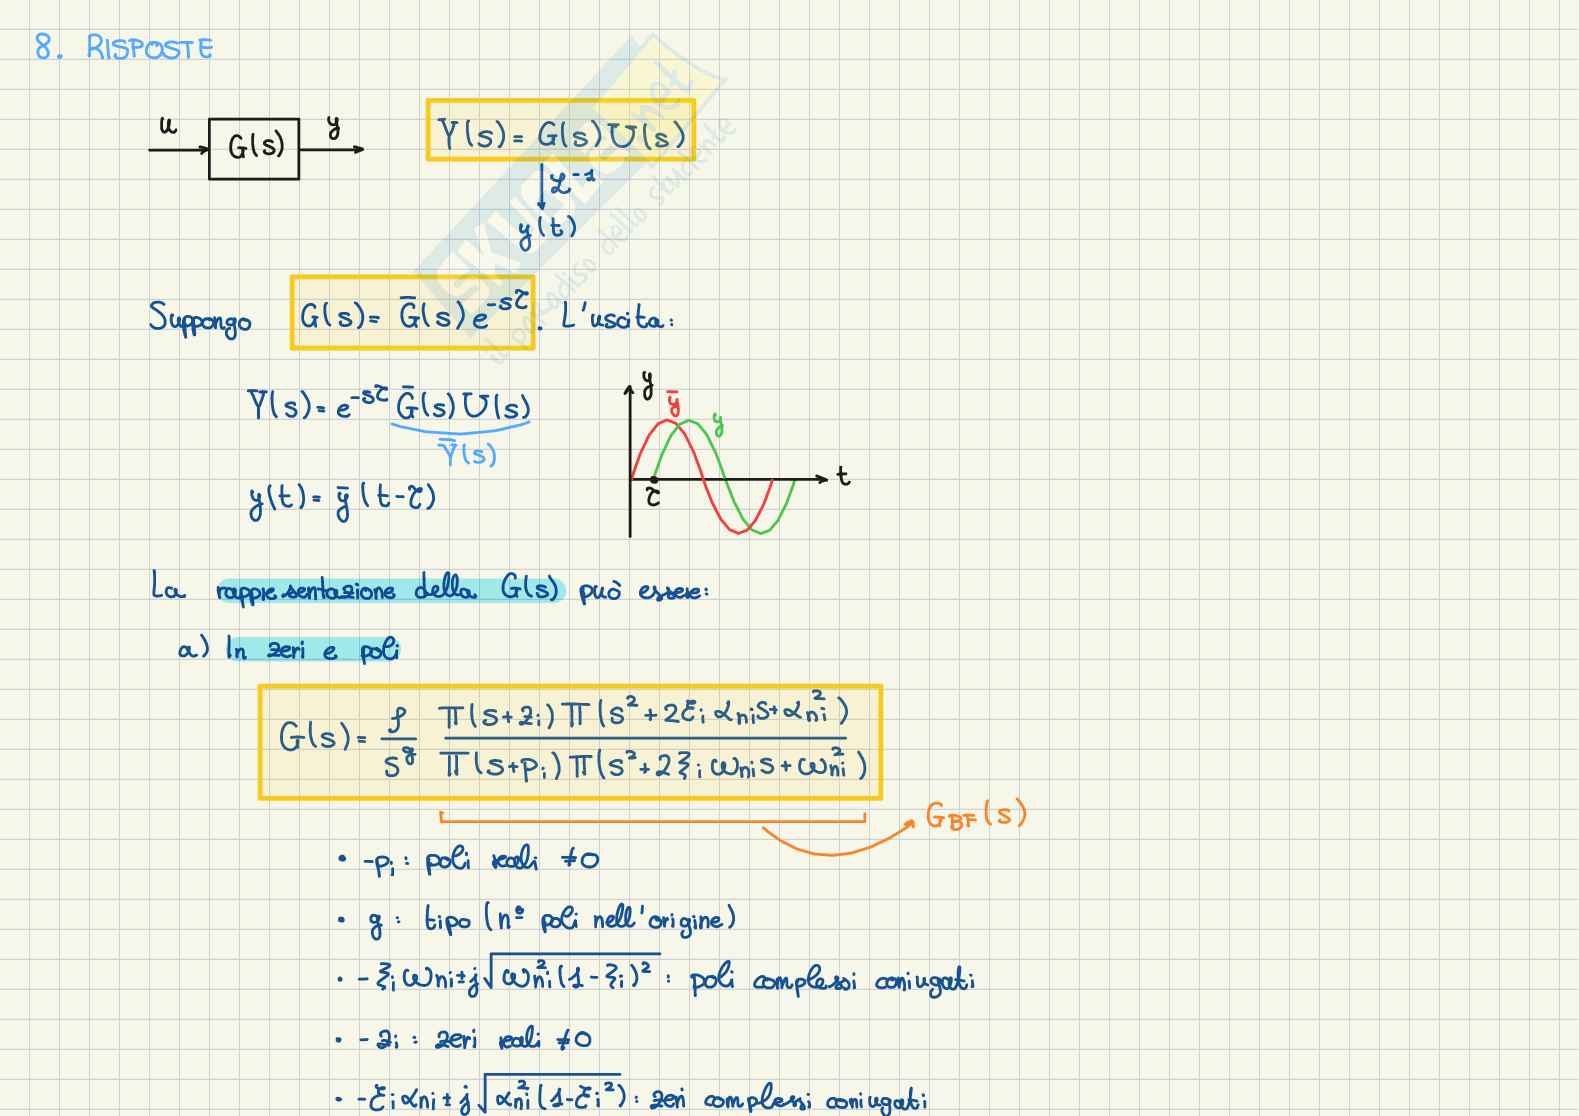 8. RISPOSTE
u G(s) y
Y(s) = G(s) U(s)
ℒ⁻¹
y(t)
SKUOLA.net
il paradiso dello studente
Suppongo G(s) = G̅(s) e^{-sτ}. L'uscita:
Y(s) = e^{-sτ} G̅(s) U(s)
Y̅(s)
y(t) = y̅(t-τ)
y
y̅ y
t
τ
La rappresentazione della G(s) può essere:
a) In zeri e poli
G(s) = ρ/s^g Π(s+z_i) Π(s²+2ξ_i α_ni s+α_ni²) / Π(s+p_i) Π(s²+2ξ_i ω_ni s+ω_ni²)
G_BF(s)
• -p_i : poli reali ≠0
• g : tipo (nº poli nell'origine)
• -ξ_i ω_ni ± j√(ω_ni²(1-ξ_i)²) : poli complessi coniugati
• -z_i : zeri reali ≠0
• -ξ_i α_ni ± j√(α_ni²(1-ξ_i²)) : zeri complessi coniugati